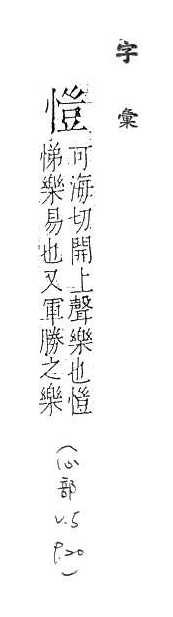 字彙
愷
可海切開上聲樂也愷
悌樂易也又軍勝之樂
(心部 v.5 P.20)